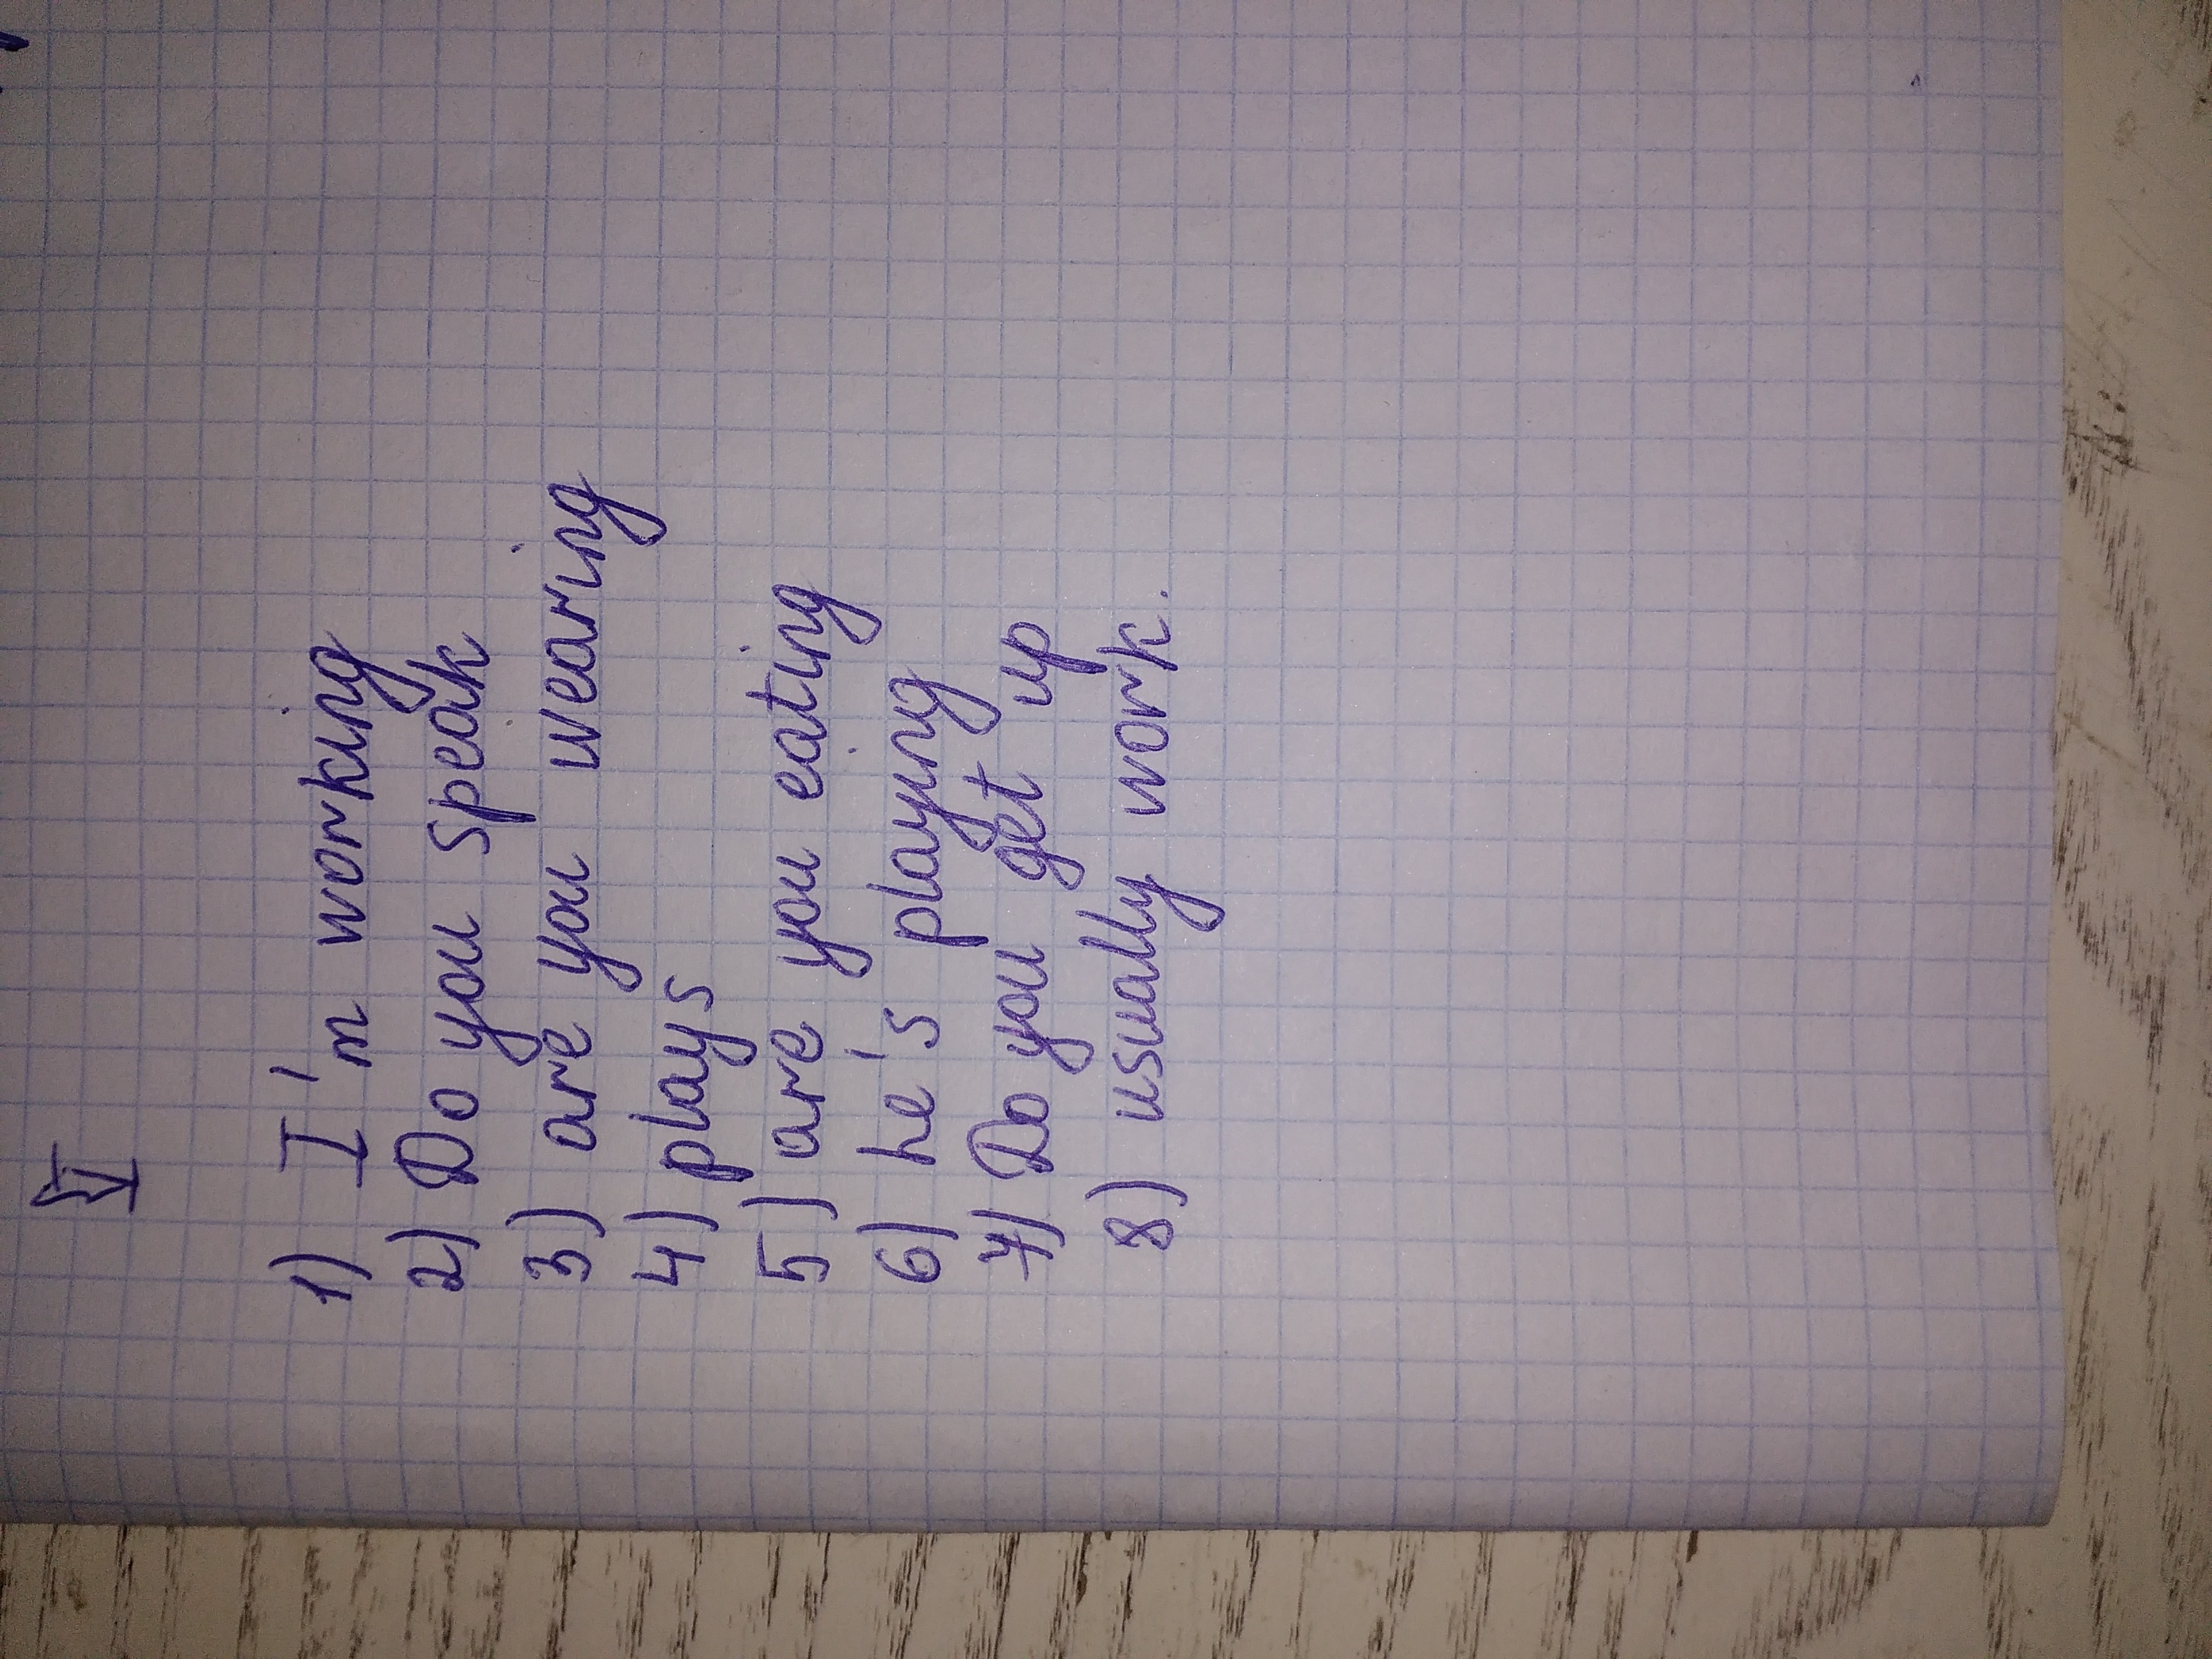 V
1) I'm working
2) Do you speak
3) are you wearing
4) plays
5) are you eating
6) he's playing
7) Do you get up
8) usually work.